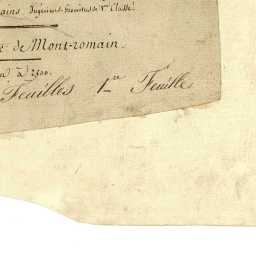 ains, Ingénieur Géomètre de 1re Classe.
de Mont-romain.
à 2500.
Feuilles 1re Feuille